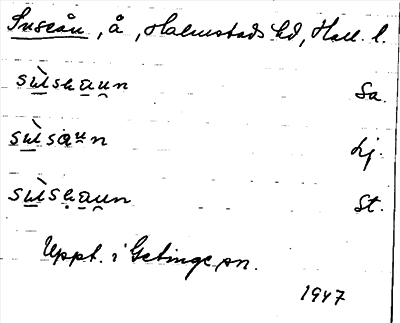 Suseån, å, Halmstads hd, Hall. l.
sùseaun Sa.
sùsaun Lj.
sùseaun St.
Uppt. i Getinge sn.
1947